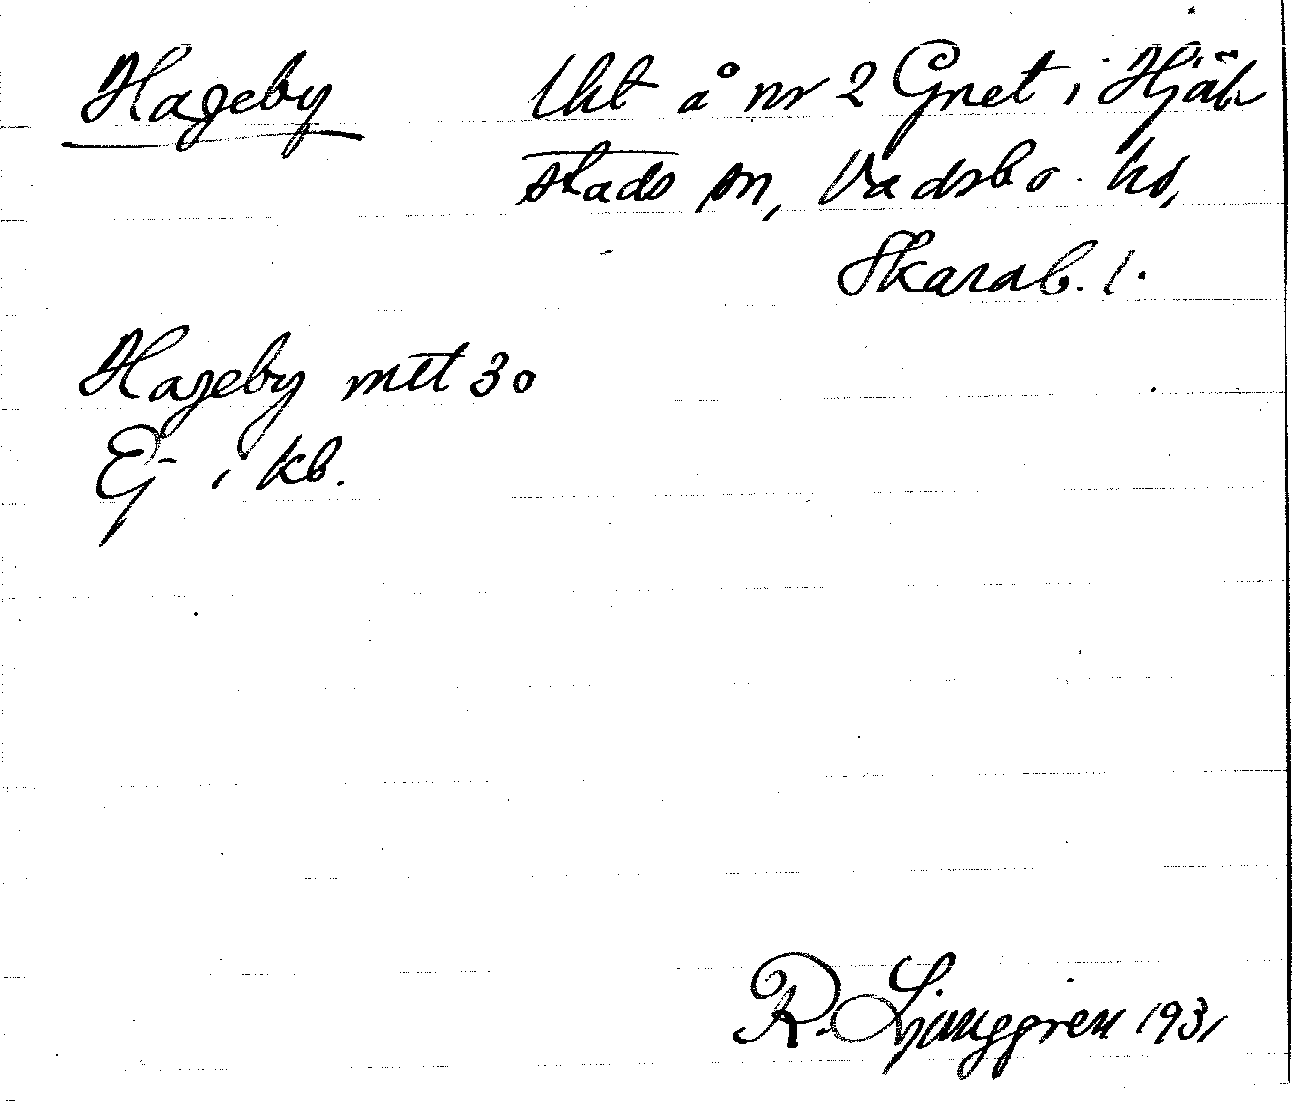 Hageby Lht å nr 2 Gnet i Hjäl-
stads sn, Vadsbo hd,
Skarab. l.
Hageby mtl 30
Ej i kb.
R. Ljunggren 1931